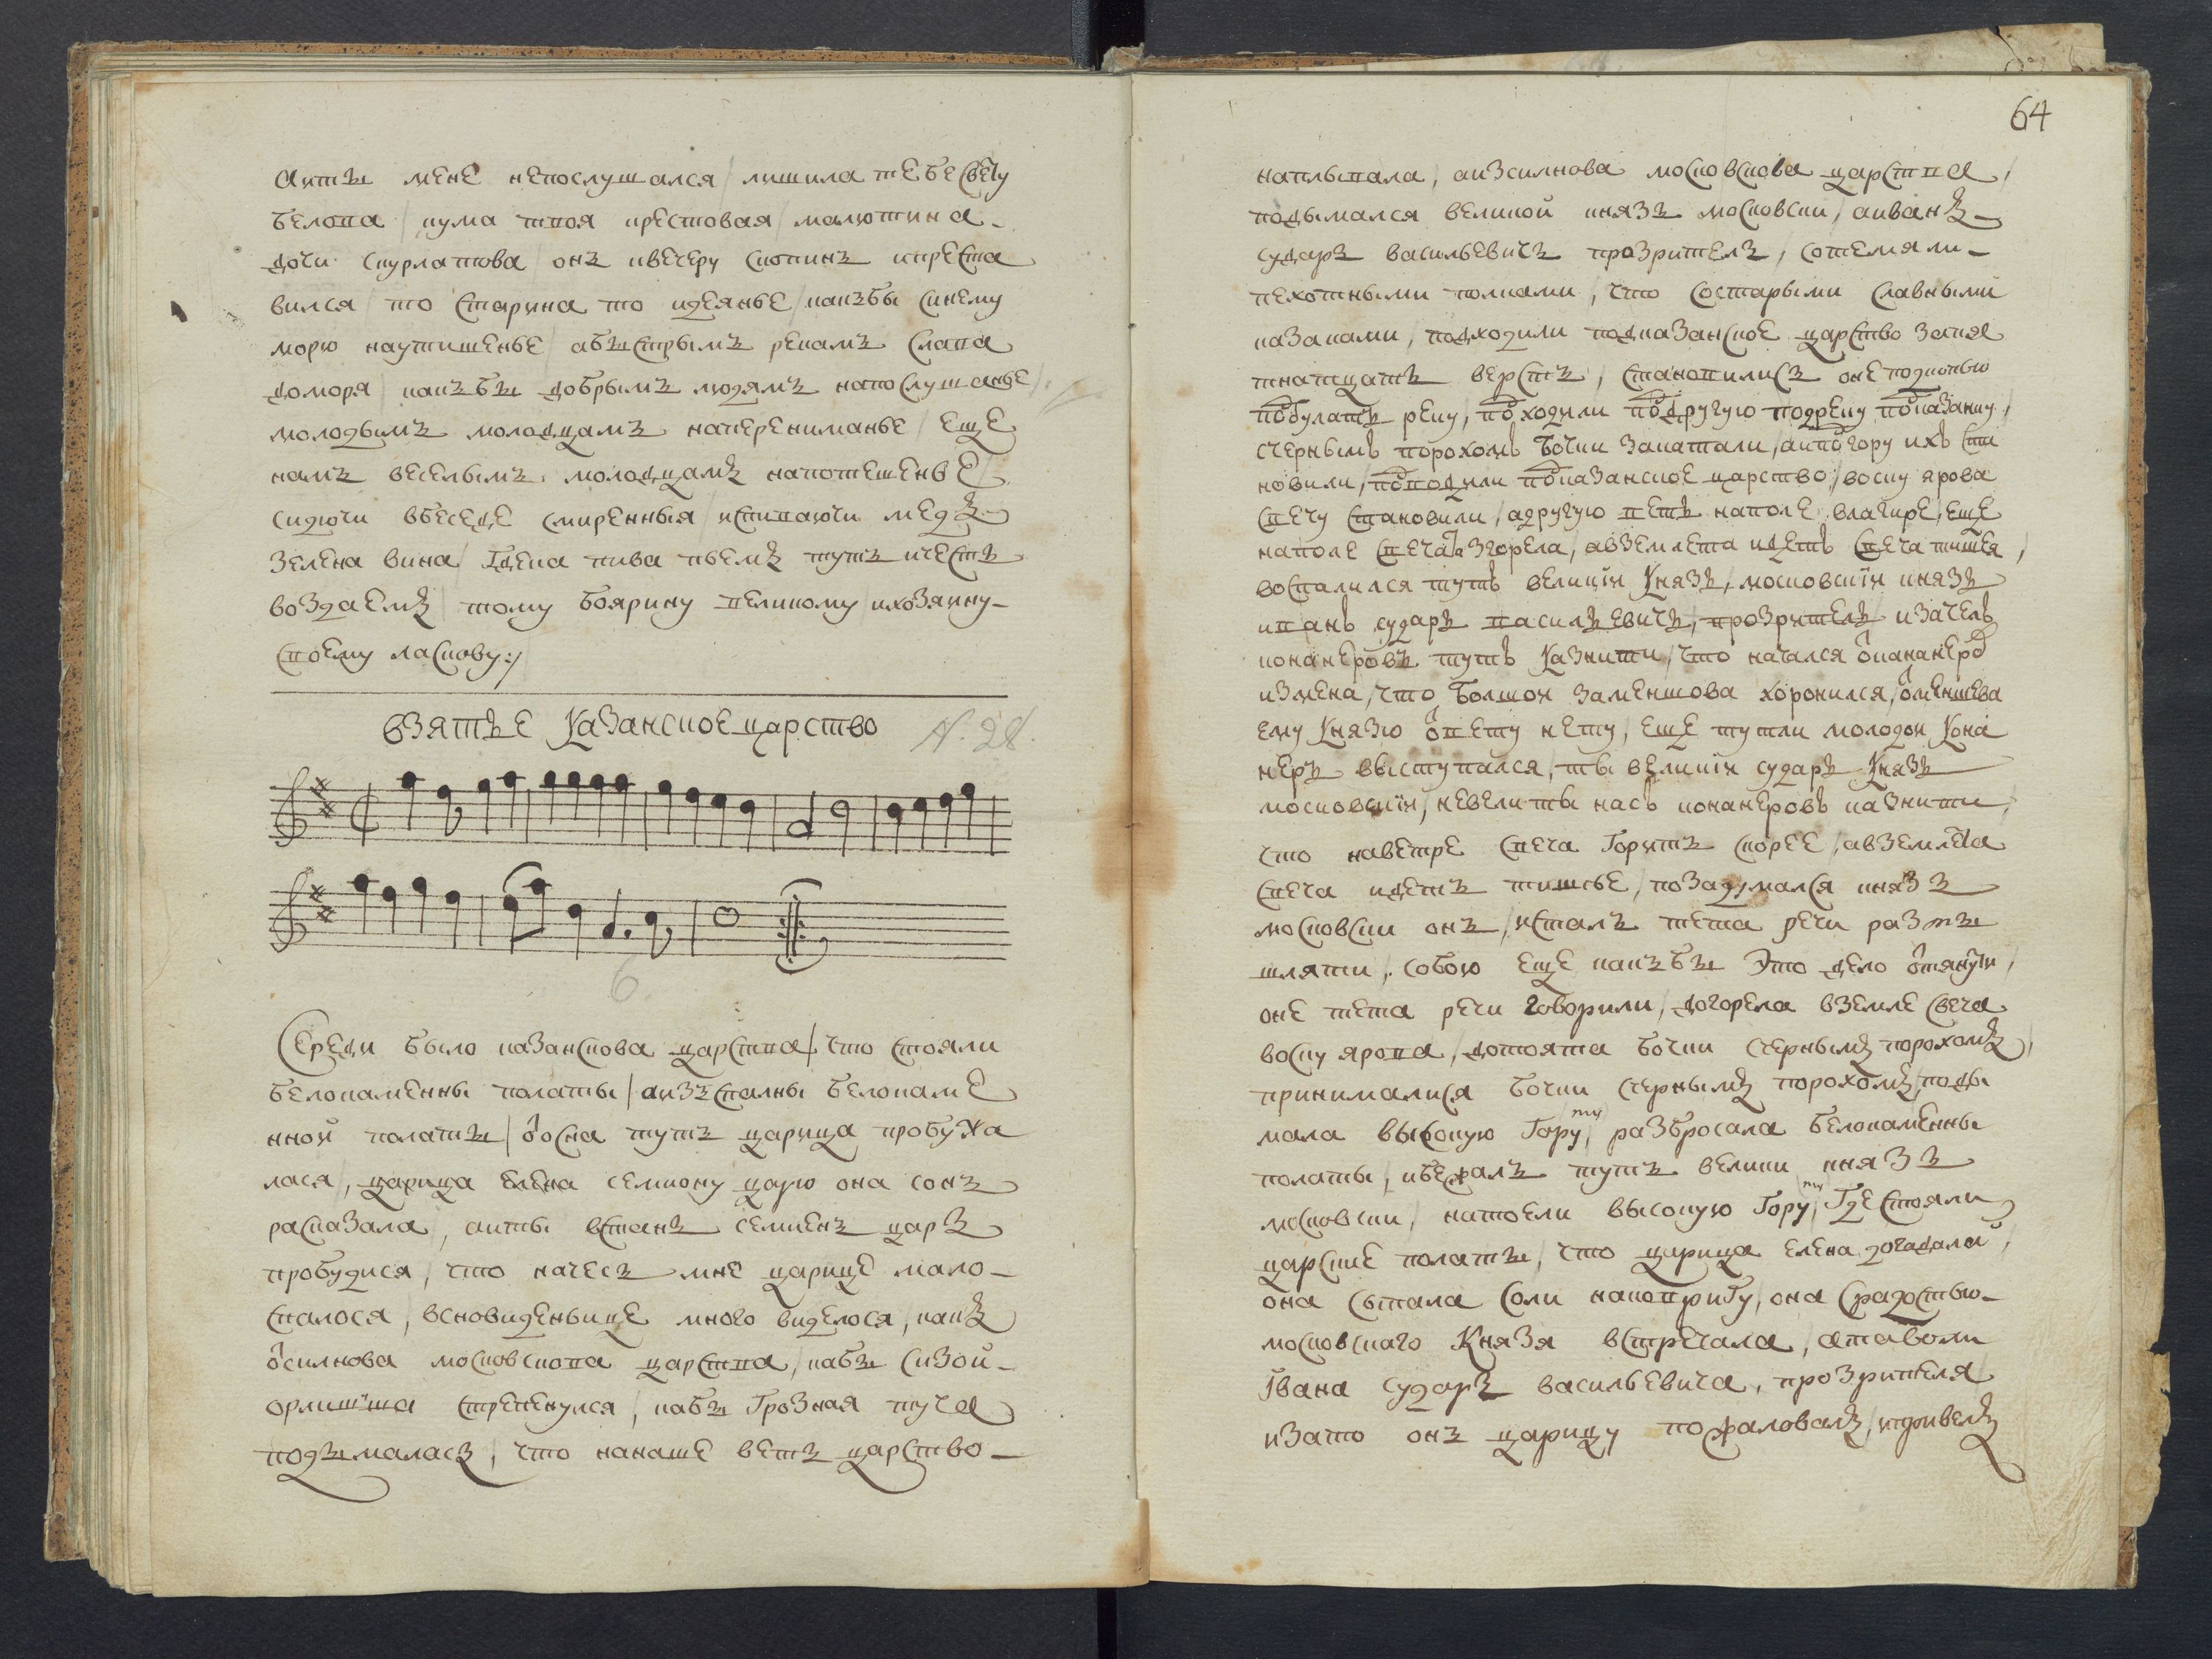 аиты мене непослушался / лишила тебе свету
белова / кума твоя крестовая / малютина
дочи скурлатова / онъ квечеру скопинъ иpреста
вился / то старина то идеянье / какъбы синему
морю наутишенье / абыстрымъ рекамъ слава
доморя / какъбы добрымъ людямъ напослушанье /
молодымъ молодцамъ наперениманье / еще
намъ веселымъ молодцамъ напотешенье /
сидючи вбеседе смиренныя / испиваючи медъ
зелена вина / Гдека пива пьемъ тутъ ичесть
воздаемъ / тому боярину великому / ихозяину
своему ласкову :/
взятье Казанское царство N. 28.
6
Середи было казанскова царства / что стояли
белокаменны полаты / аизъспалны белокаме
нной полаты / ѿсна тутъ царица пробужа
лася, царица елена семиону царю она сонъ
расказала, аиты встань семиенъ царь
пробудися, что начесь мне царице мало
спалося, всновиденьице много виделося, какъ
ѿсилнова московскова царства / кабы сизой
орлишша стрепенулся, кабы Грозная туча
подымалась, что нанаше веть царство
64
наплывала, аизсилнова московскова царства /
подымался великой князь московски, аиванъ
сударь васильевичь прозритель, сотемяли
пехотными полками, что состарыми славными
казаками, подходили подказанское царство запя
тнатцать верстъ, становились оне подкопью
подбулатъ реку, подходили поддругую подреку подказанку /
счернымъ порохомъ бочки закатали, аиподгору ихъ ста
новили, подводили подказанское царство, воску ярова
свечу становили / адругую веть наполе влагире, еще
наполе свеча та згорела, авземлета идетъ свеча тишея,
воспалился тутъ великїи Князь, московскїи князь
иванъ сударь василь евичь, прозритель изачелъ
конанеровъ тутъ Казнити, что начался ѿкананеров
измена, что болшои заменшова хоронился, ѿменшева
ему Князю ѿвету нету, еще тутли молодои Кона
неръ выступался, ты великїи сударь Князь
московскїи, невелиты насъ конанеровъ казнити,
что наветре свеча Горитъ скорее, авземлета
свеча идетъ тишее, позадумался князь
московски онъ, исталъ тета речи размы
шляти, собою еще какъбы Это дело ѿтянути,
оне тета речи говорили, догорела вземле свеча
воску ярова, дотовта бочки счернымъ порохомъ,
принималися бочки счернымъ порохомъ, поды
мала высокую Гору ту, разбросала белокаменны
полаты, ибежалъ тутъ велики князь
московски, натоели высокую Гору ту, Где стояли
царские полаты, что царица елена догадала,
она сыпала соли наковригу, она срадостью
московскаго Князя встречала, атаволи
Ївана сударь васильевича, прозрителя
изато онъ царицу пожаловалъ, ипривелъ